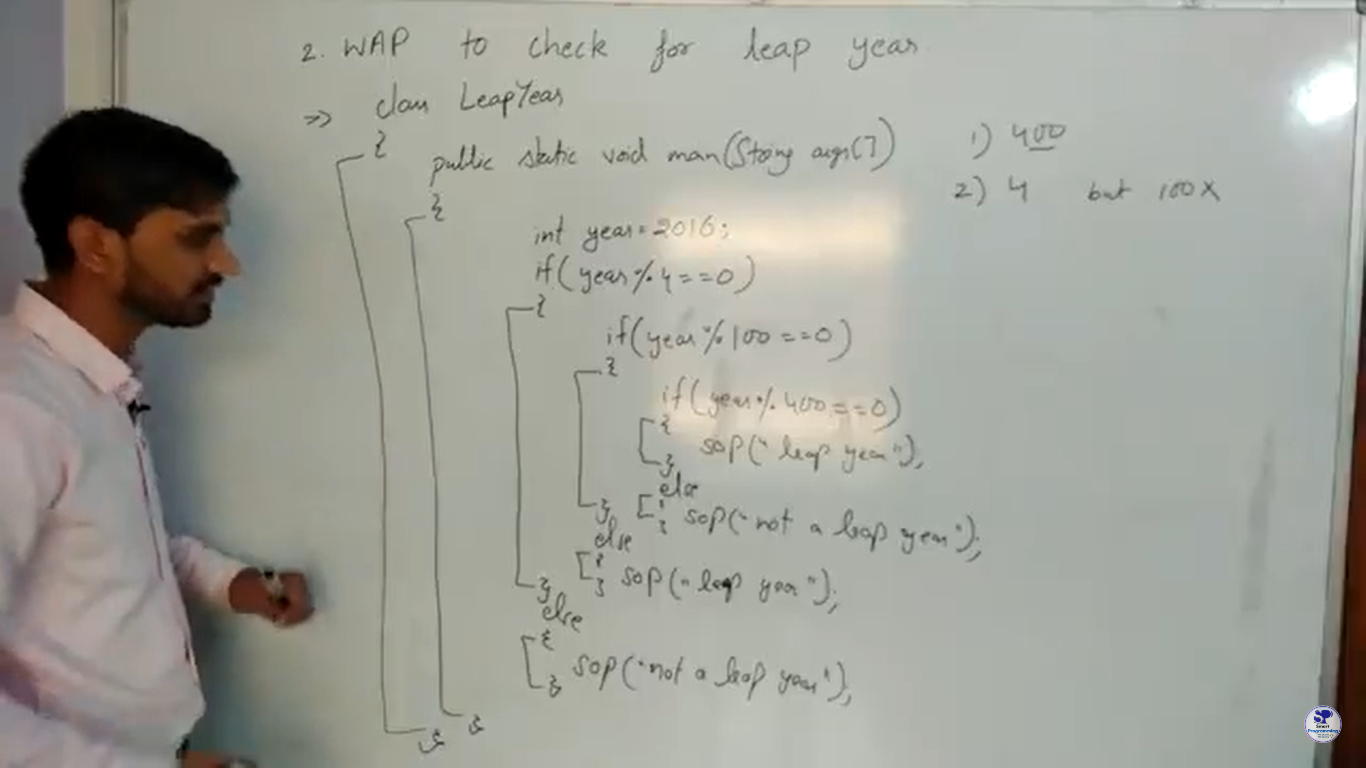 2. WAP to check for leap year
=> class LeapYear
{
public static void main(String args[])
{
int year=2016;
if(year%4==0)
{
if(year%100==0)
{
if(year%400==0)
{
sop("leap year");
}
else
{
} sop("not a leap year");
}
else
{
} sop("leap year");
}
else
{
} sop("not a leap year");
}
}
1) 400
2) 4 but 100X
SP
Smart
Programming